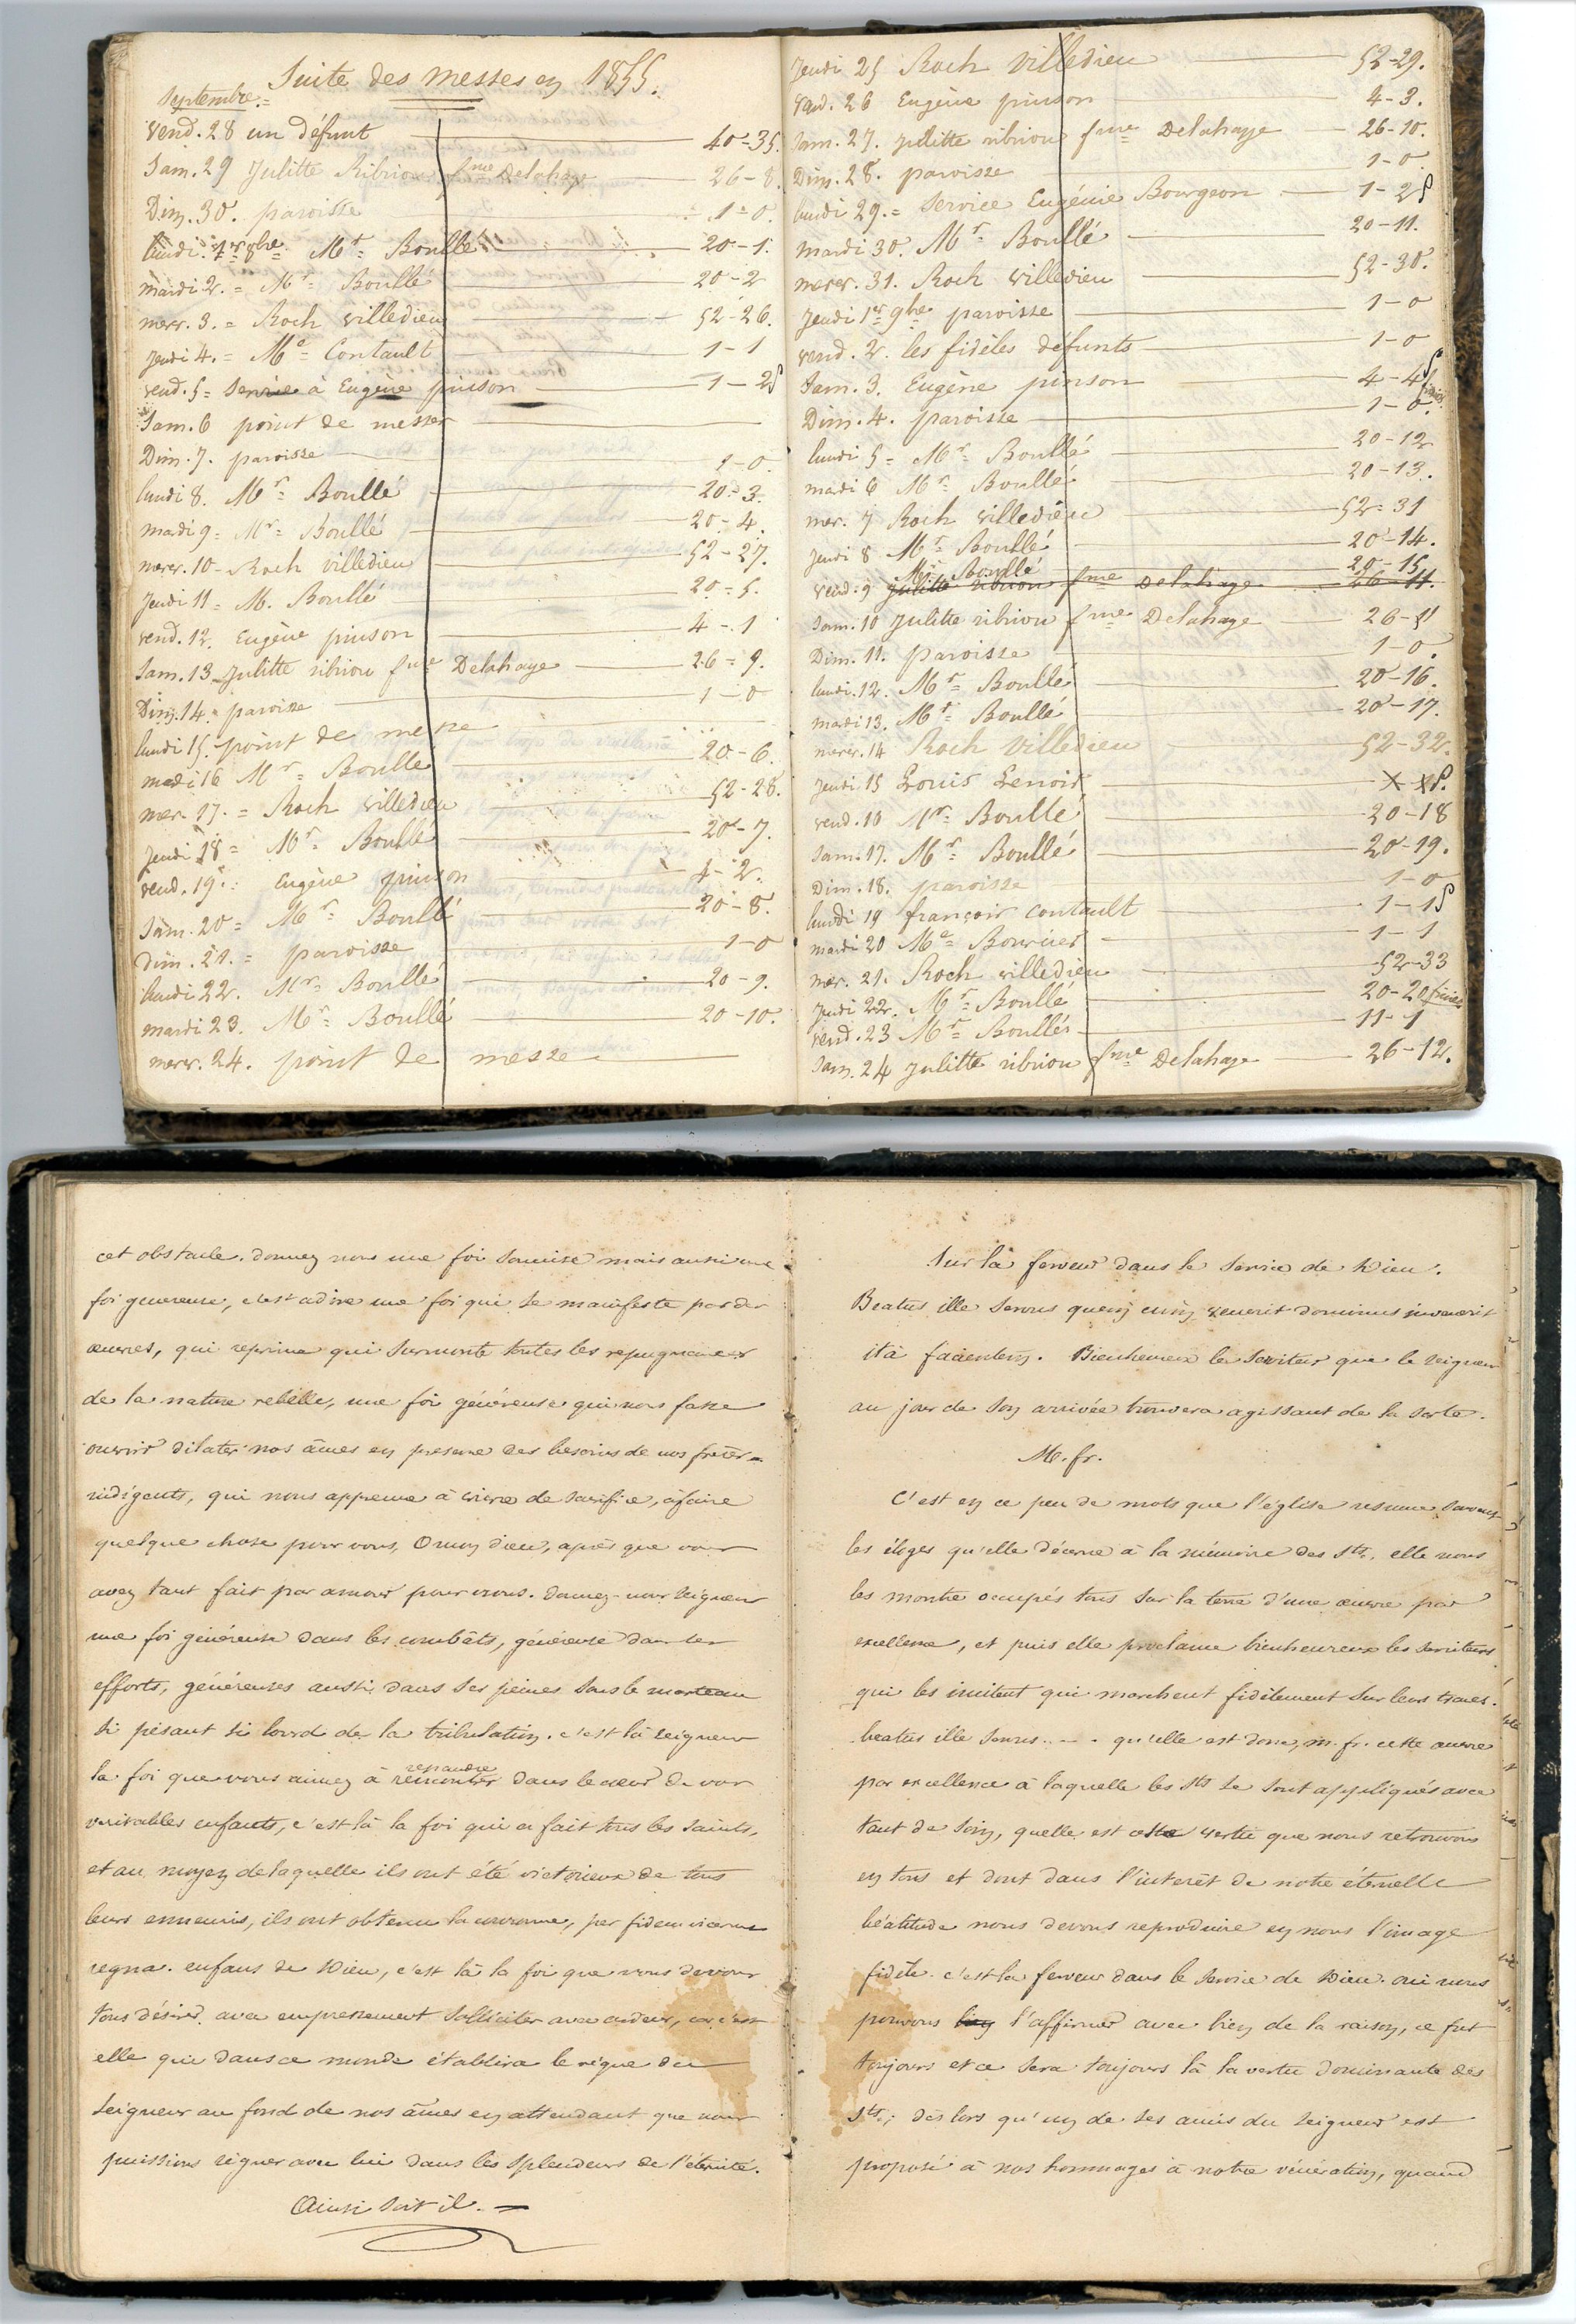 Suite des messes en 1855.
Septembre.=
Vend. 28 un défunt 40-35.
Sam. 29 Julitte Ribriou fme Delahaye 26-8.
Dim. 30. paroisse 1-0.
lundi. 1er 8bre Mr= Boullé 20-1.
mardi 2. = Mr= Boullé 20-2
merc. 3. = Roch Villedieu 52-26.
Jeudi 4. = Me= Contault 1-1
vend. 5= Service à Eugène pinson 1-2S
Sam. 6 point de messes
Dim. 7. paroisse 1-0.
lundi 8. Mr= Boullé 20-3.
mardi 9= Mr= Boullé 20-4.
merc. 10- Roch villedieu 52-27.
Jeudi 11= M. Boullé 20=5.
vend. 12. Eugène pinson 4-1
Sam. 13 Julitte ribriou fme Delahaye 26=9.
Dim. 14. paroisse 1-0
lundi 15. point de messe
mardi 16 Mr= Boullé 20-6.
mer. 17. = Roch villedieu 52-28.
Jeudi 18= Mr= Boullé 20-7.
vend. 19. Eugène pinson 4-2.
Sam. 20= Mr= Boullé 20-8.
dim. 21. = paroisse 1-0
lundi 22. Mr= Boullé 20-9.
mardi 23. Mr= Boullé 20-10.
merc. 24. point de messe
Jeudi 25 Roch Villedieu 52-29.
vend. 26 Eugène pinson 4-3.
Sam. 27. Julitte ribriou fme Delahaye 26-10.
Dim. 28. paroisse 1-0
lundi 29.= Service Eugénie Bourgeon 1-2S
mardi 30. Mr= Boullé 20-11.
merc. 31. Roch villedieu 52-30.
Jeudi 1er 9bre paroisse 1-0
vend. 2. les fidèles défunts 1-0
Sam. 3. Eugène pinson 4-4S
Dim. 4. paroisse 1-0.
lundi 5= Mr= Boullé 20-12
mardi 6 Mr= Boullé 20-13.
mer. 7 Roch villedieu 52=31
Jeudi 8 Mr= Boullé 20-14.
Mr= Boullé 20-15
vend. 9 Julitte ribriou fme Delahaye 26-11.
Sam. 10 Julitte ribriou fme Delahaye 26-11
Dim. 11. paroisse 1-0.
lundi. 12. Mr= Boullé 20-16.
mardi 13. Mr= Boullé 20-17.
merc. 14 Roch Villedieu 52-32.
Jeudi 15 Louis Lenoir
vend. 16 Mr= Boullé 20-18
Sam. 17. Mr= Boullé 20-19.
Dim. 18. paroisse 1-0
lundi 19 françois contault 1-1S
mardi 20 Me= 1-1
mer. 21. Roch villedieu 52-33
Jeudi 22. Mr= Boullé 20-20 finies
vend. 23 Mr= Boullé 11-1
Sam. 24 Julitte ribriou fme Delahaye 26-12.
cet obstacle. donnez nous une foi soumise mais aussi une
foi genereuse, c'est adire une foi qui se manifeste par des
œuvres, qui reprime qui surmonte toutes les repugnances
de la nature rebelle, une foi généreuse qui nous fasse
ouvrir dilater nos âmes en presence des besoins de nos freres
indigents, qui nous apprenne à vivre de sacrifice, à faire
quelque chose pour vous, O mon dieu, après que vous
avez tant fait par amour pour nous. donnez-nous seigneur
une foi généreuse dans les combâts, généreuse dans les
efforts, généreuses aussi dans ses peines sous le marteau
si pésant si lourd de la tribulation. c'est là seigneur
repandre
la foi que vous aimez à rencontrer dans le cœur de vos
veritables enfants, c'est là la foi qui a fait tous les saints,
et au moyen de laquelle ils ont été victorieux de tous
leurs ennemis, ils ont obtenu la couronne, per fidem vicerunt
regna. enfans de Dieu, c'est là la foi que nous devons
tous désirer avec empressement solliciter avec ardeur, car c'est
elle qui dans ce monde établira le règne du
seigneur au fond de nos âmes en attendant que nous
puissions régner avec lui dans les splendeurs de l'éternité.
Ainsi soit il.
Sur la ferveur dans le service de Dieu.
Beatus ille servus quem cum venerit dominus invenerit
ità facientem. Bienheureux le serviteur que le seigneur
au jour de son arrivée trouvera agissant de la sorte.
M. fr.
C'est en ce peu de mots que l'église resume souvent
les éloges qu'elle décerne à la mémoire des Sts, elle nous
les montre occupés tous sur la terre d'une œuvre par
excellence, et puis elle proclame bienheureux les serviteurs
qui les imitent qui marchent fidèlement sur leurs traces.
beatus ille servus.... qu'elle est donc, m. fr. cette œuvre
par excellence à laquelle les Sts se sont appliqués avec
tant de soin, quelle est cette vertu que nous retrouvons
en tous et dont dans l'interêt de notre éternelle
béatitude nous devons reproduire en nous l'image
fidèle. c'est la ferveur dans le service de Dieu. oui nous
pouvons bien l'affirmer avec bien de la raison, ce fut
toujours et ce sera toujours là la vertu dominante des
Sts; dès lors qu'un de ses amis du seigneur est
proposé à nos hommages à notre vénération, quand